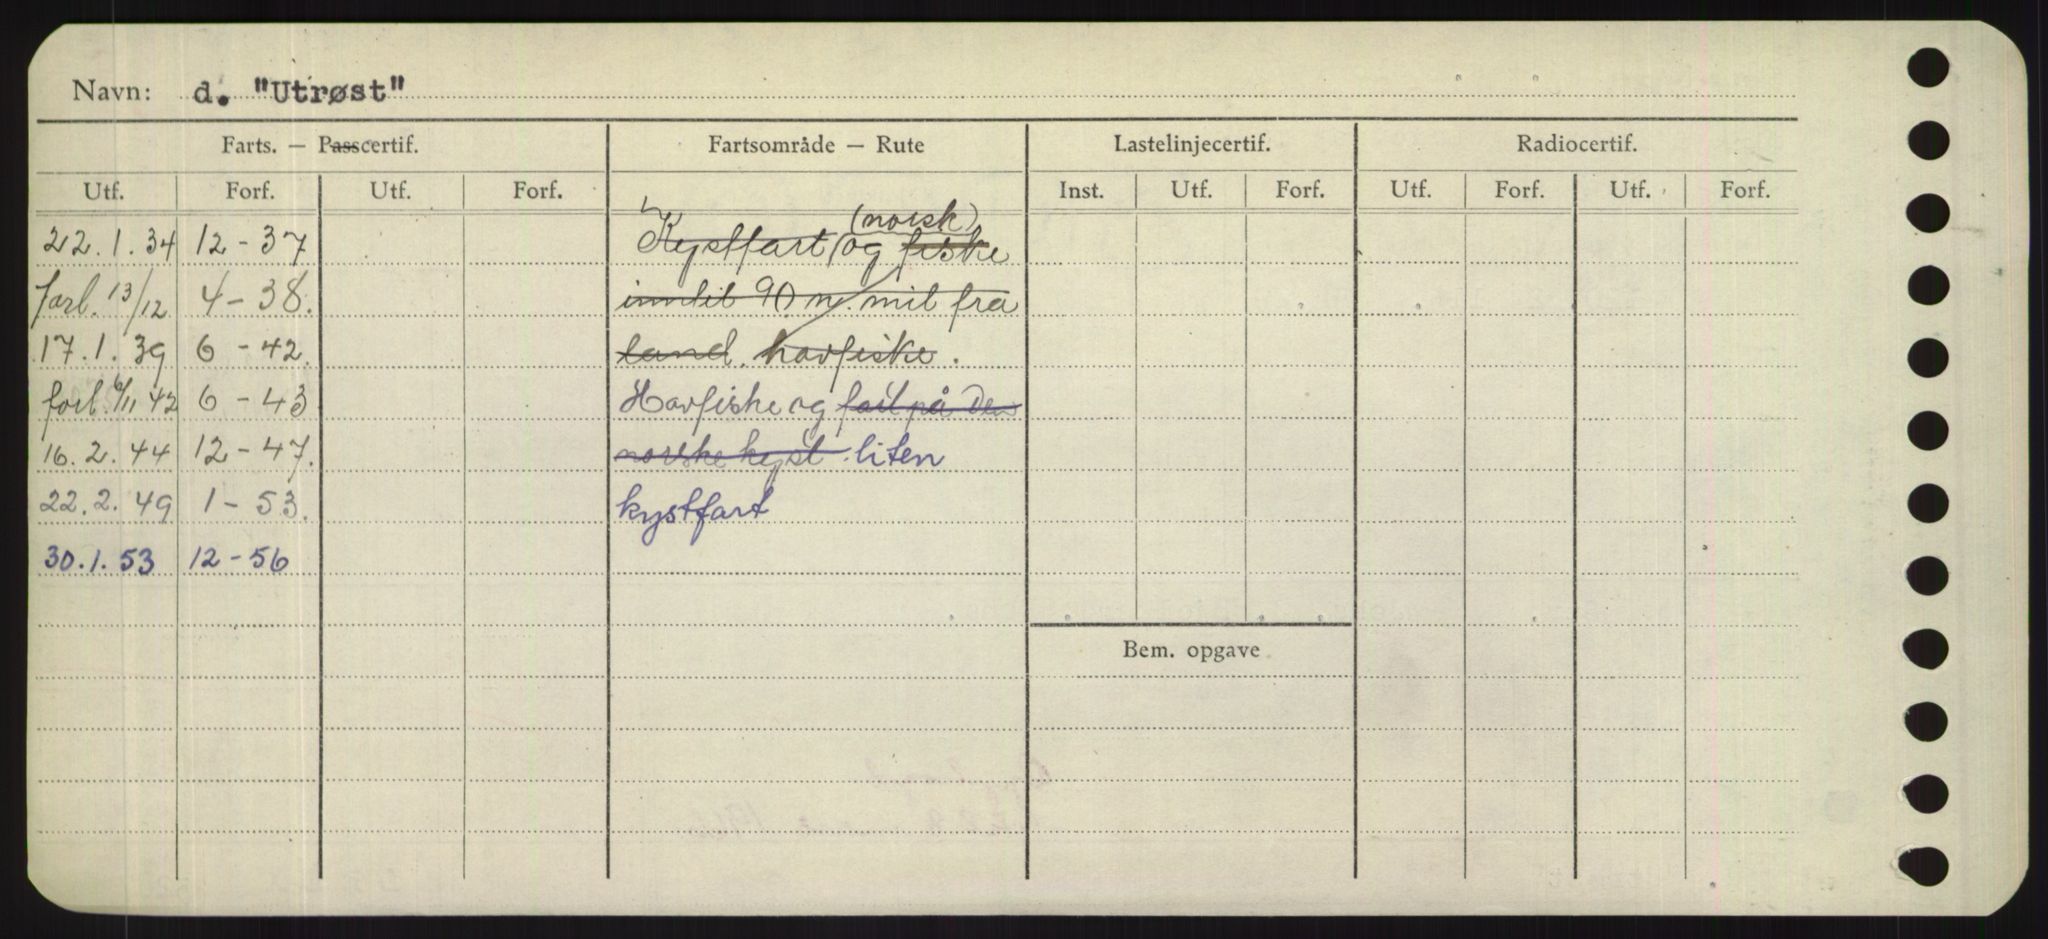 Navn: d. "Utrøst"
Farts. — Passcertif. Fartsområde — Rute Lastelinjecertif. Radiocertif.
Utf. Forf. Utf. Forf. Inst. Utf. Forf. Utf. Forf. Utf. Forf.
(norsk)
22.1.34 12-37 Kystfart og fiske
forl. 13/12 4-38. inntil 90 n. mil fra
17.1.39 6-42. land. havfiske.
forl. 6/11 42 6-43 Havfiske og fart på den
16.2.44 12-47. norske kyst. liten
22.2.49 1-53. kystfart
30.1.53 12-56
Bem. opgave